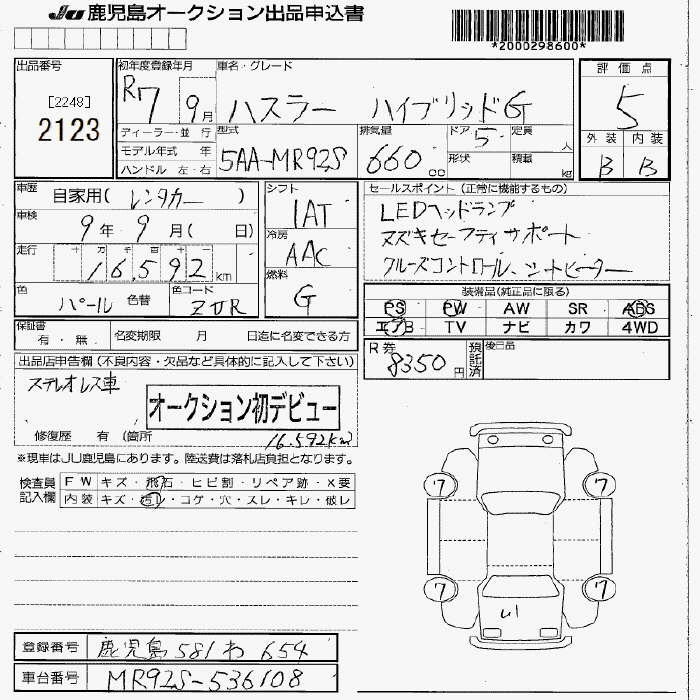 JU 鹿児島オークション出品申込書
*2000298600*
出品番号
[2248]
2123
初年度登録年月
R7 9月
車名・グレード
ハスラー ハイブリッドG
評価点
5
外装 内装
B B
ディーラー・並行
モデル年式 年
ハンドル 左・右
型式
5AA-MR92S
排気量
660 cc
ドア 5
形状
定員 人
積載 kg
車歴 自家用(レンタカー)
車検 9年 9月(日)
走行 十万千百十一
16,592 km
色 パール 色替
色コード ZVR
シフト
IAT
冷房
AAC
燃料
G
セールスポイント(正常に機能するもの)
LEDヘッドランプ
スズキセーフティサポート
クルーズコントロール、シートヒーター
装備品(純正品に限る)
PS PW AW SR ABS
エアB TV ナビ カワ 4WD
保証書
有・無
名変期限 月 日迄に名変できる方
R券
8350円
預託済
後日品
出品店申告欄(不良内容・欠品など具体的に記入して下さい)
ステレオレス車
オークション初デビュー
修復歴 有(箇所
16,592km
※現車はJU鹿児島にあります。陸送費は落札店負担となります。
検査員記入欄
FW キズ・飛石・ヒビ割・リペア跡・X要
内装 キズ・汚レ・コゲ・穴・スレ・キレ・破レ
ワ ワ
ワ ワ
登録番号 鹿児島 581 わ 654
車台番号 MR92S-536108